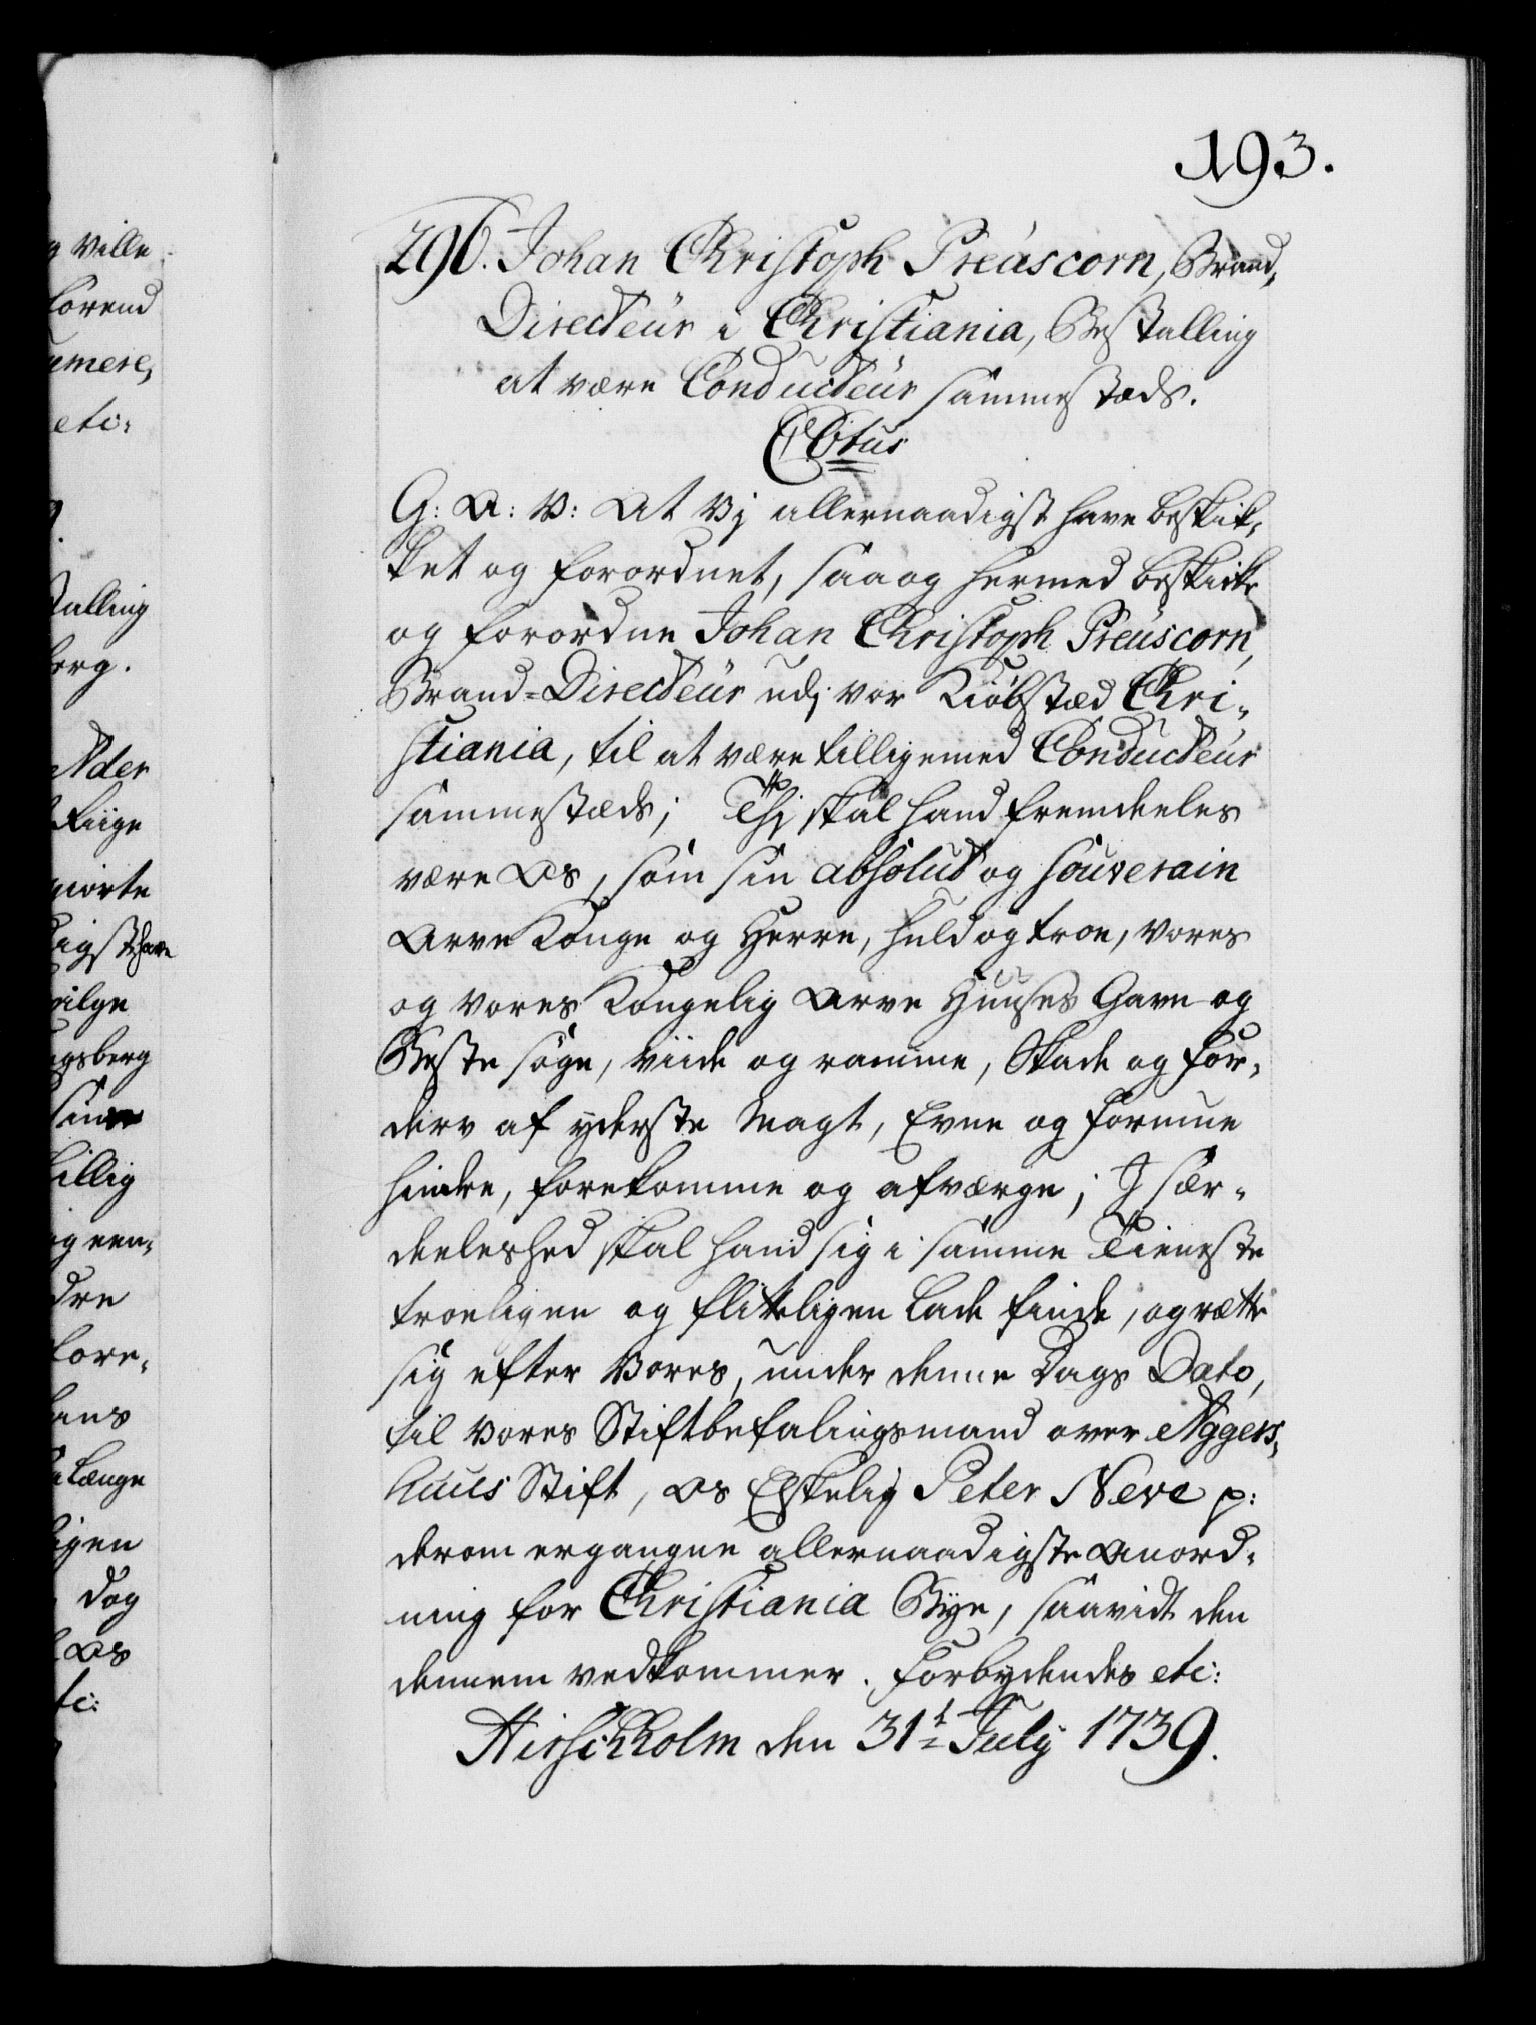 193.
296. Johan Christoph Preuscorn, Brand-
Directeur i Christiania, Bestalling
at være Conducteur sammestæds.
C6tus
G: A: V: At Vj allernaadigst have beskik-
ket og forordnet, saa og hermed beskikke
og forordne Johan Christoph Preuscorn,
Brand-Directeur udj vor Kiøbstæd Chri-
stiania, til at være tilligemed Conducteur
sammestæds; Thj skal hand fremdeeles
være Os, som sin absolut og souverain
Arve Konge og Herre, huld og troe, vores
og vores Kongelig Arve Huuses Gavn og
Beste søge, viide og ramme, Skade og for-
derv af yderste Magt, Evne og formue
hindre, forekomme og afværge; J sær-
deeleshed skal hand sig i samme Tieneste
troeligen og flitteligen lade finde, og rætte
sig efter Vores, under denne Dags Dato,
til vores Stiftbefalingsmand over Aggers-
huus Stift, Os Elskelig Peter Neve p:
derom ergangne allernaadigste Anord-
ning for Christiania Bye, saavidt den
dennem vedkommer. Forbydendes etc:
Hirschholm den 31t July 1739.
g ville
forend
umere,
etc:
talling
berg.
Alder
Riige
giorte
digst have
vilge
ngsberg
sine
billig
ig een-
dre
fore-
hans
a længe
igen
dog
l Os
tc: